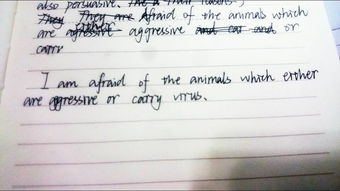 also persuasive.
They They are afraid of the animals which
are agressive aggressive and car and or
carry
I am afraid of the animals which either
are aggressive or carry virus.